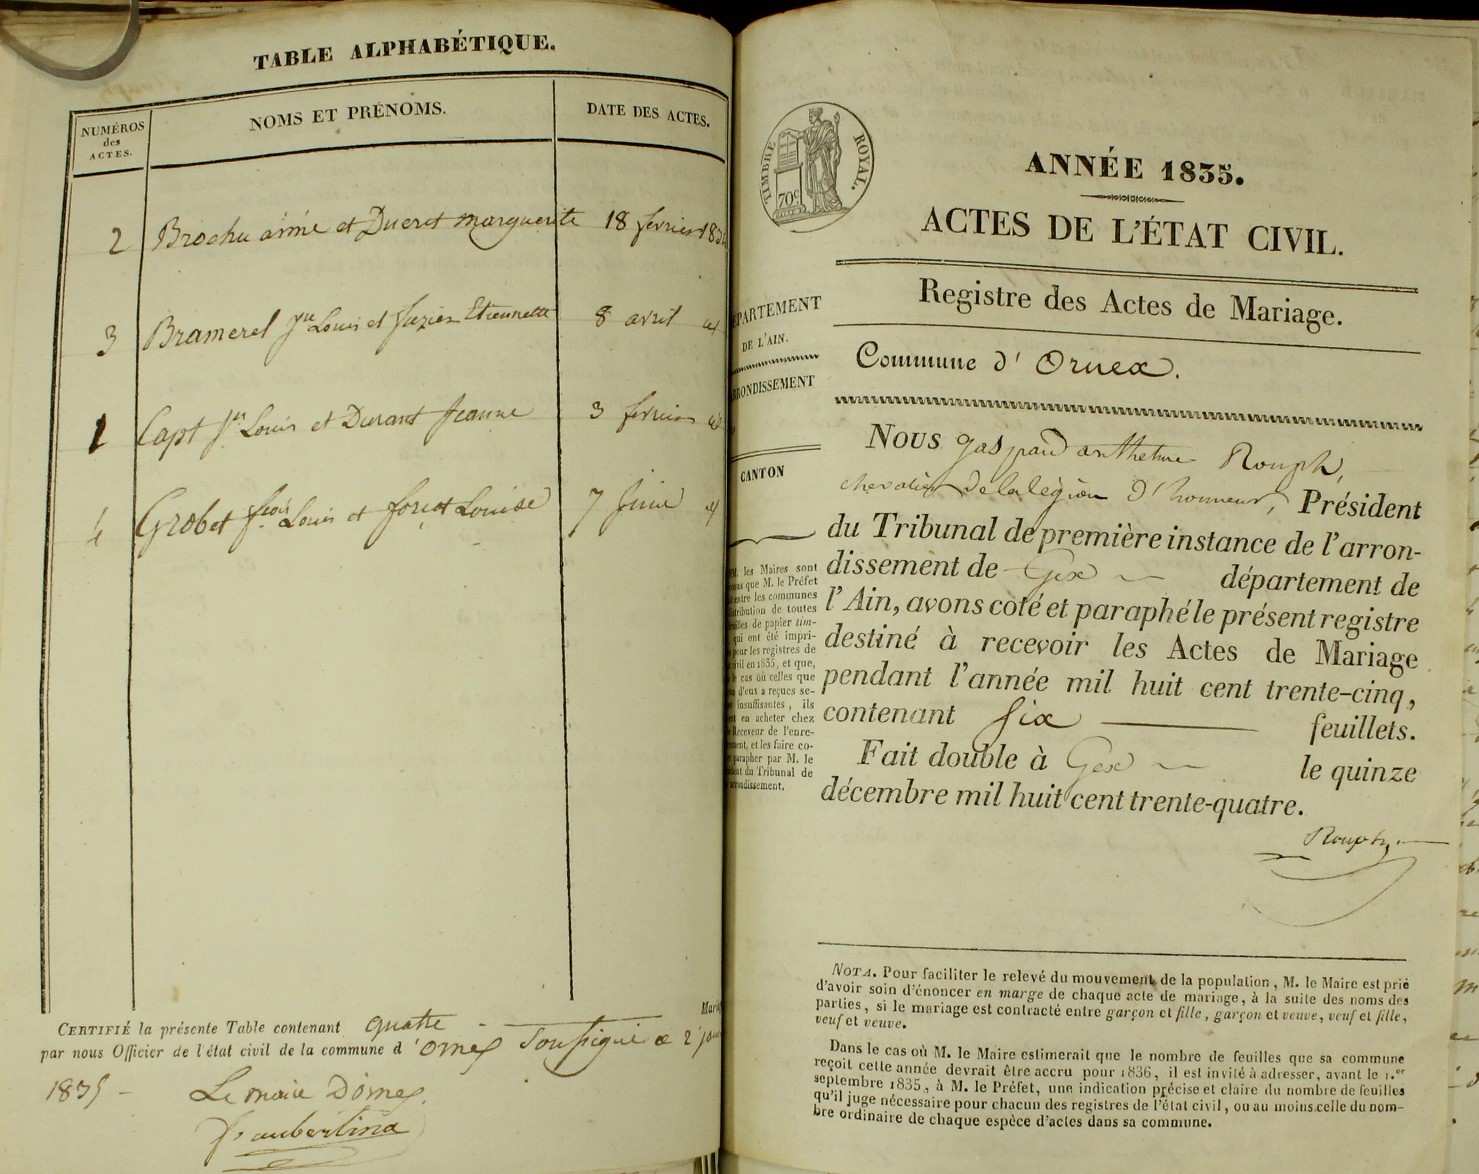 TABLE ALPHABÉTIQUE.
NUMÉROS
des
ACTES.
NOMS ET PRÉNOMS.
DATE DES ACTES.
2 Brochu aimé et Ducret marguerite 18 fevrier 183
3 Bramerel Louis et Etiennette 8 avril
1 Capt Louis et Durant Jeanne 3 fevrier
4 Grobet Louis et Louise 7 Juin
Mari
CERTIFIÉ la présente Table contenant quatre
par nous Officier de l'état civil de la commune d'Ornex Soussigné
1835
Le maire D'ornex
TIMBRE ROYAL.
70c
ANNÉE 1835.
ACTES DE L'ÉTAT CIVIL.
Registre des Actes de Mariage.
Commune d'Ornex.
PARTEMENT
DE L'AIN.
RONDISSEMENT
CANTON
les Maires sont
que M. le Préfet
les communes
de toutes
de papier tim-
qui ont été impri-
pour les registres de
en 1835, et que,
cas où celles que
d'eux a reçues se-
insuffisantes, ils
en acheter chez
Receveur de l'enre-
et les faire co-
parapher par M. le
du Tribunal de
Nous gaspard anthelme Rouph,
chevalier de la légion d'honneur, Président
du Tribunal de première instance de l'arron-
dissement de Gex département de
l'Ain, avons coté et paraphé le présent registre
destiné à recevoir les Actes de Mariage
pendant l'année mil huit cent trente-cinq,
contenant six feuillets.
Fait double à Gex le quinze
décembre mil huit cent trente-quatre.
Rouph
NOTA. Pour faciliter le relevé du mouvement de la population, M. le Maire est prié
d'avoir soin d'énoncer en marge de chaque acte de mariage, à la suite des noms des
parties, si le mariage est contracté entre garçon et fille, garçon et veuve, veuf et fille,
veuf et veuve.
Dans le cas où M. le Maire estimerait que le nombre de feuilles que sa commune
reçoit cette année devrait être accru pour 1836, il est invité à adresser, avant le 1.er
septembre 1835, à M. le Préfet, une indication précise et claire du nombre de feuilles
qu'il juge nécessaire pour chacun des registres de l'état civil, ou au moins celle du nom-
bre ordinaire de chaque espèce d'actes dans sa commune.